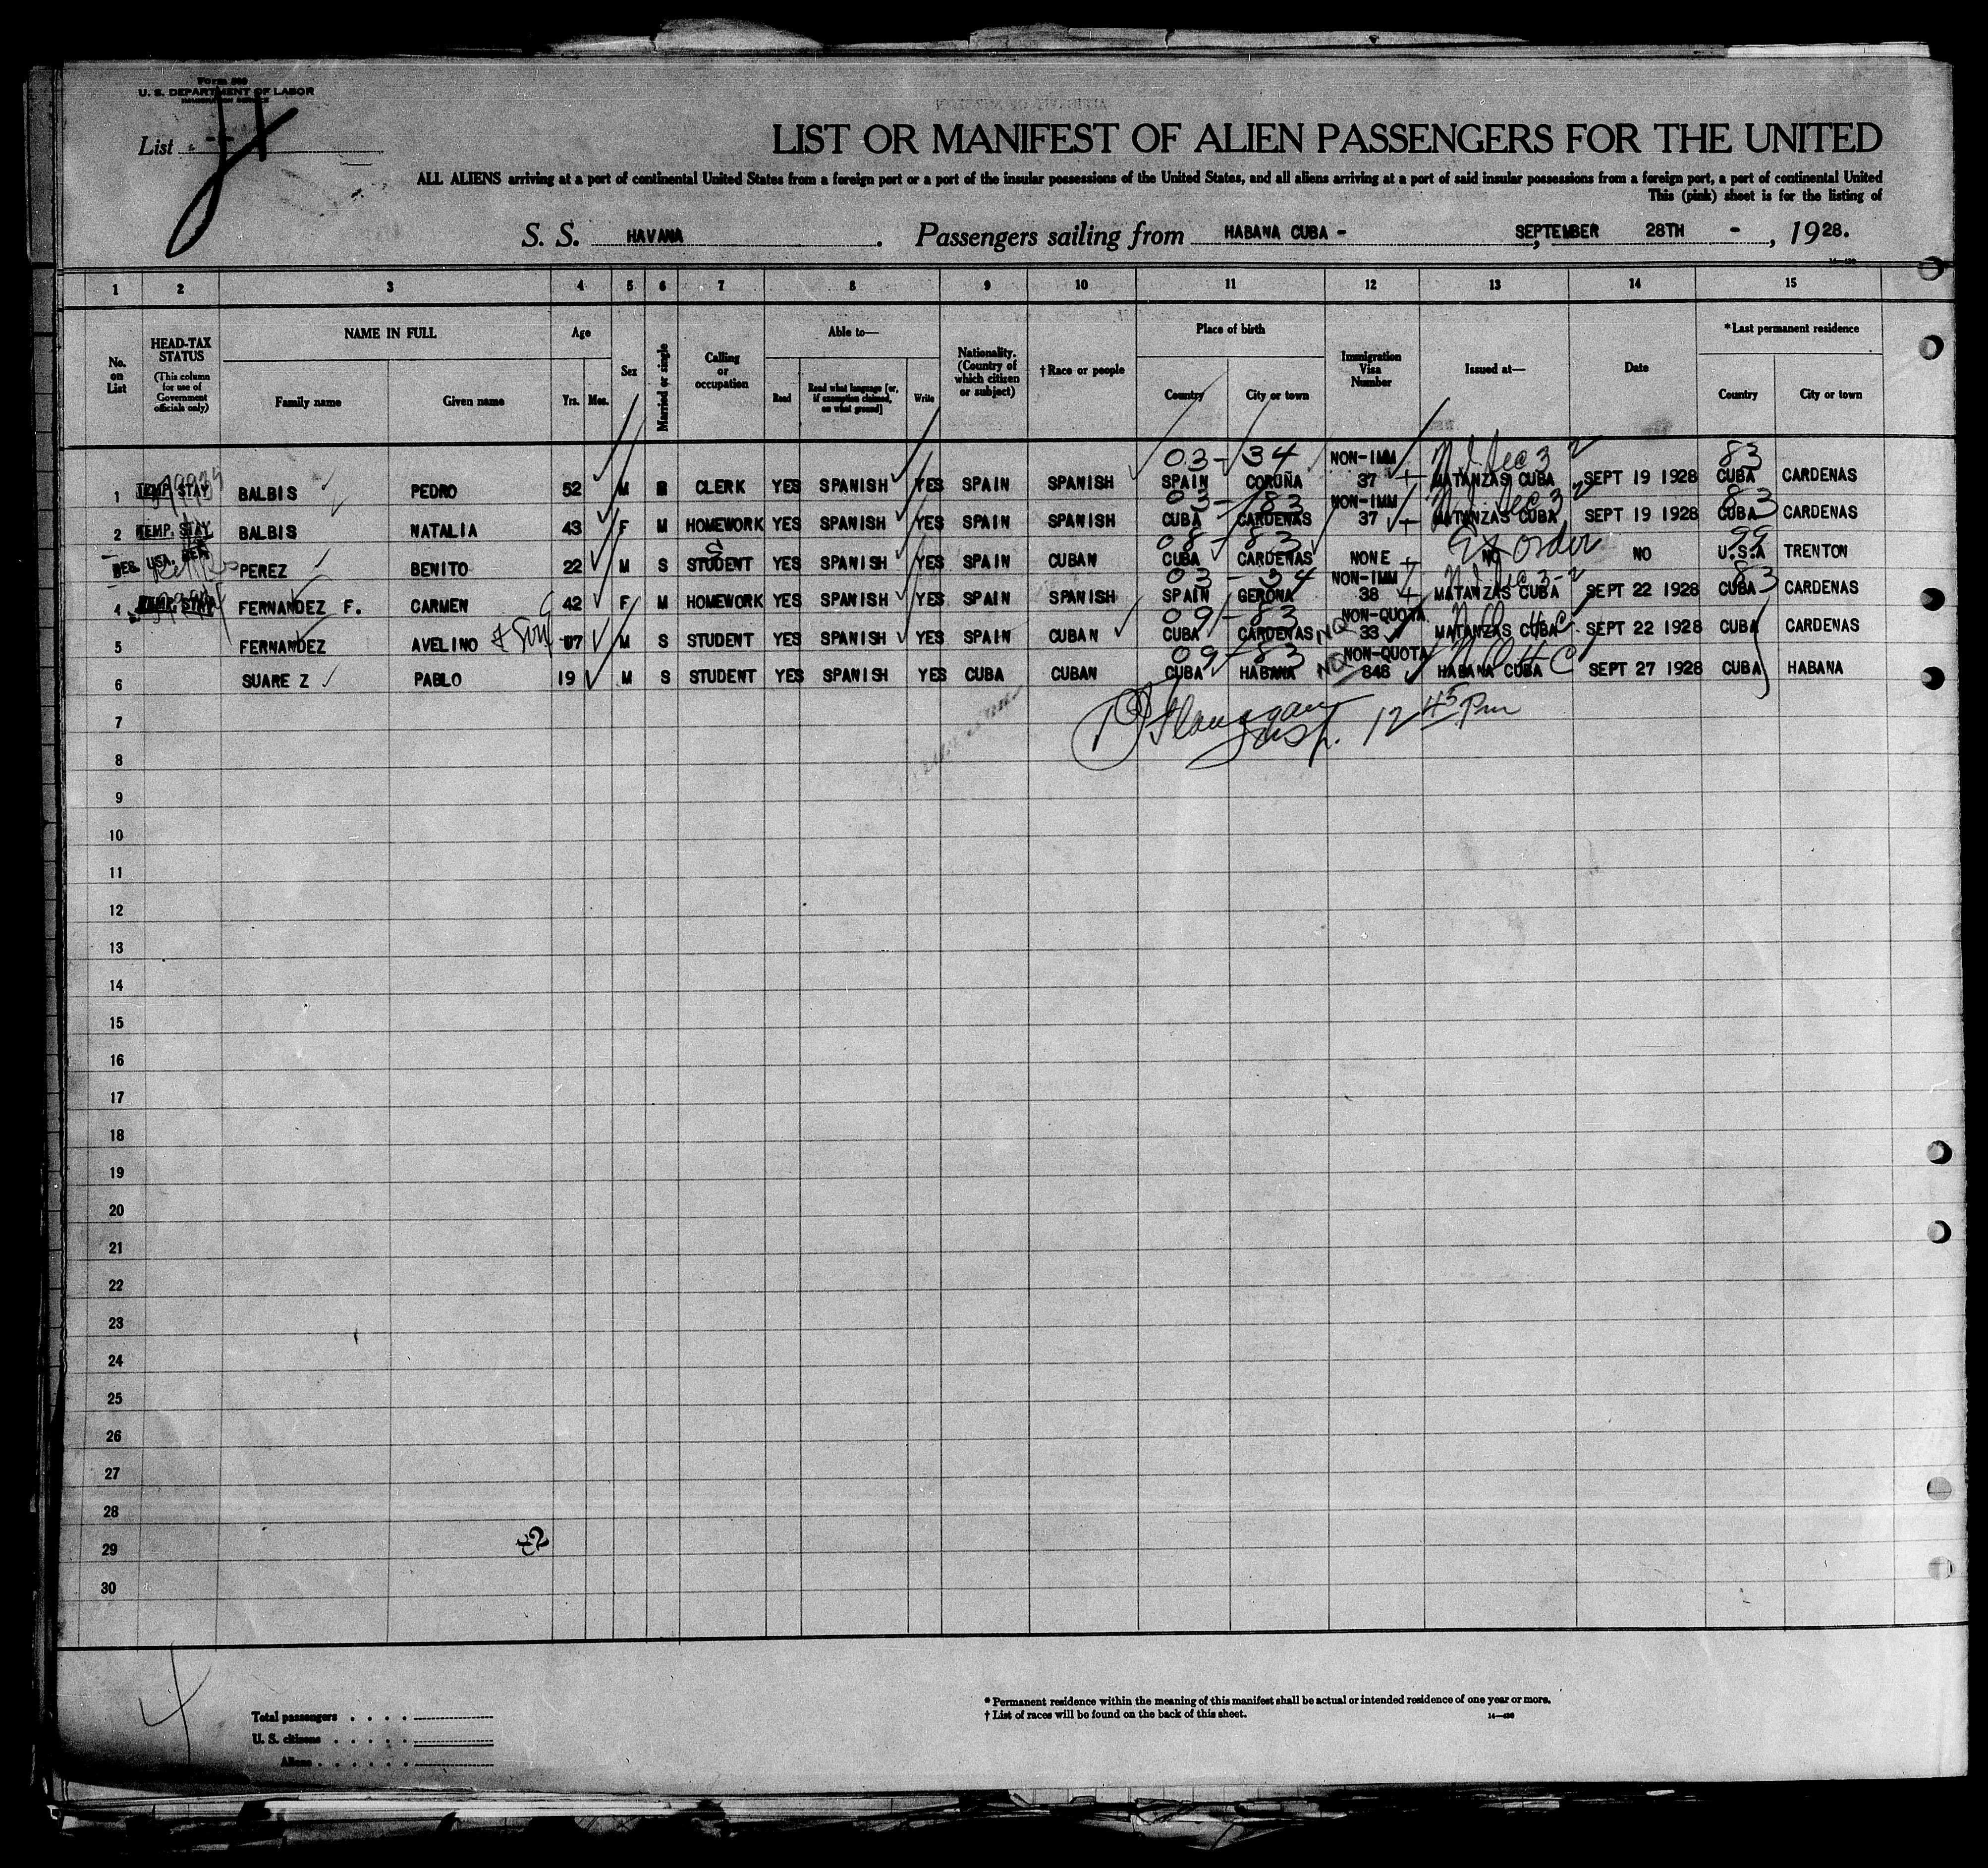 Form 500
U. S. DEPARTMENT OF LABOR
IMMIGRATION SERVICE
List
LIST OR MANIFEST OF ALIEN PASSENGERS FOR THE UNITED
ALL ALIENS arriving at a port of continental United States from a foreign port or a port of the insular possessions of the United States, and all aliens arriving at a port of said insular possessions from a foreign port, a port of continental United
This (pink) sheet is for the listing of
S. S. HAVANA . Passengers sailing from HABANA CUBA - , SEPTEMBER 28TH - , 1928.
1 2 3 4 5 6 7 8 9 10 11 12 13 14 15
No. on List
HEAD-TAX STATUS
(This column for use of Government officials only)
NAME IN FULL
Family name
Given name
Age
Yrs. Mos.
Sex
Married or single
Calling or occupation
Able to—
Read
Read what language [or, if exemption claimed, on what ground]
Write
Nationality. (Country of which citizen or subject)
†Race or people
Place of birth
Country
City or town
Immigration Visa Number
Issued at—
Date
*Last permanent residence
Country
City or town
03 - 34 83
1 TEMP. STAY BALBIS PEDRO 52 M M CLERK YES SPANISH YES SPAIN SPANISH SPAIN CORUÑA NON-IMM 37 MATANZAS CUBA SEPT 19 1928 CUBA CARDENAS
03 - 83 83
2 TEMP. STAY BALBIS NATALIA 43 F M HOMEWORK YES SPANISH YES SPAIN SPANISH CUBA CARDENAS NON-IMM 37 MATANZAS CUBA SEPT 19 1928 CUBA CARDENAS
08 - 83 Ex order 99
USA. PEREZ BENITO 22 M S STUDENT YES SPANISH YES SPAIN CUBAN CUBA CARDENAS NONE NO NO U.S.A TRENTON
03 - 34 83
4 TEMP. STAY FERNANDEZ F. CARMEN 42 F M HOMEWORK YES SPANISH YES SPAIN SPANISH SPAIN GERONA NON-IMM 38 MATANZAS CUBA SEPT 22 1928 CUBA CARDENAS
09 - 83
5 FERNANDEZ AVELINO & Son 17 M S STUDENT YES SPANISH YES SPAIN CUBAN CUBA CARDENAS NQ NON-QUOTA 33 MATANZAS CUBA SEPT 22 1928 CUBA CARDENAS
09 - 83
6 SUAREZ PABLO 19 M S STUDENT YES SPANISH YES CUBA CUBAN CUBA HABANA NQ NON-QUOTA 848 HABANA CUBA SEPT 27 1928 CUBA HABANA
7 Flanagan Insp. 12 45 Pm
8
9
10
11
12
13
14
15
16
17
18
19
20
21
22
23
24
25
26
27
28
29
30
Total passengers . . . .
U. S. citizens . . . . .
Aliens . . . . . .
* Permanent residence within the meaning of this manifest shall be actual or intended residence of one year or more.
† List of races will be found on the back of this sheet.